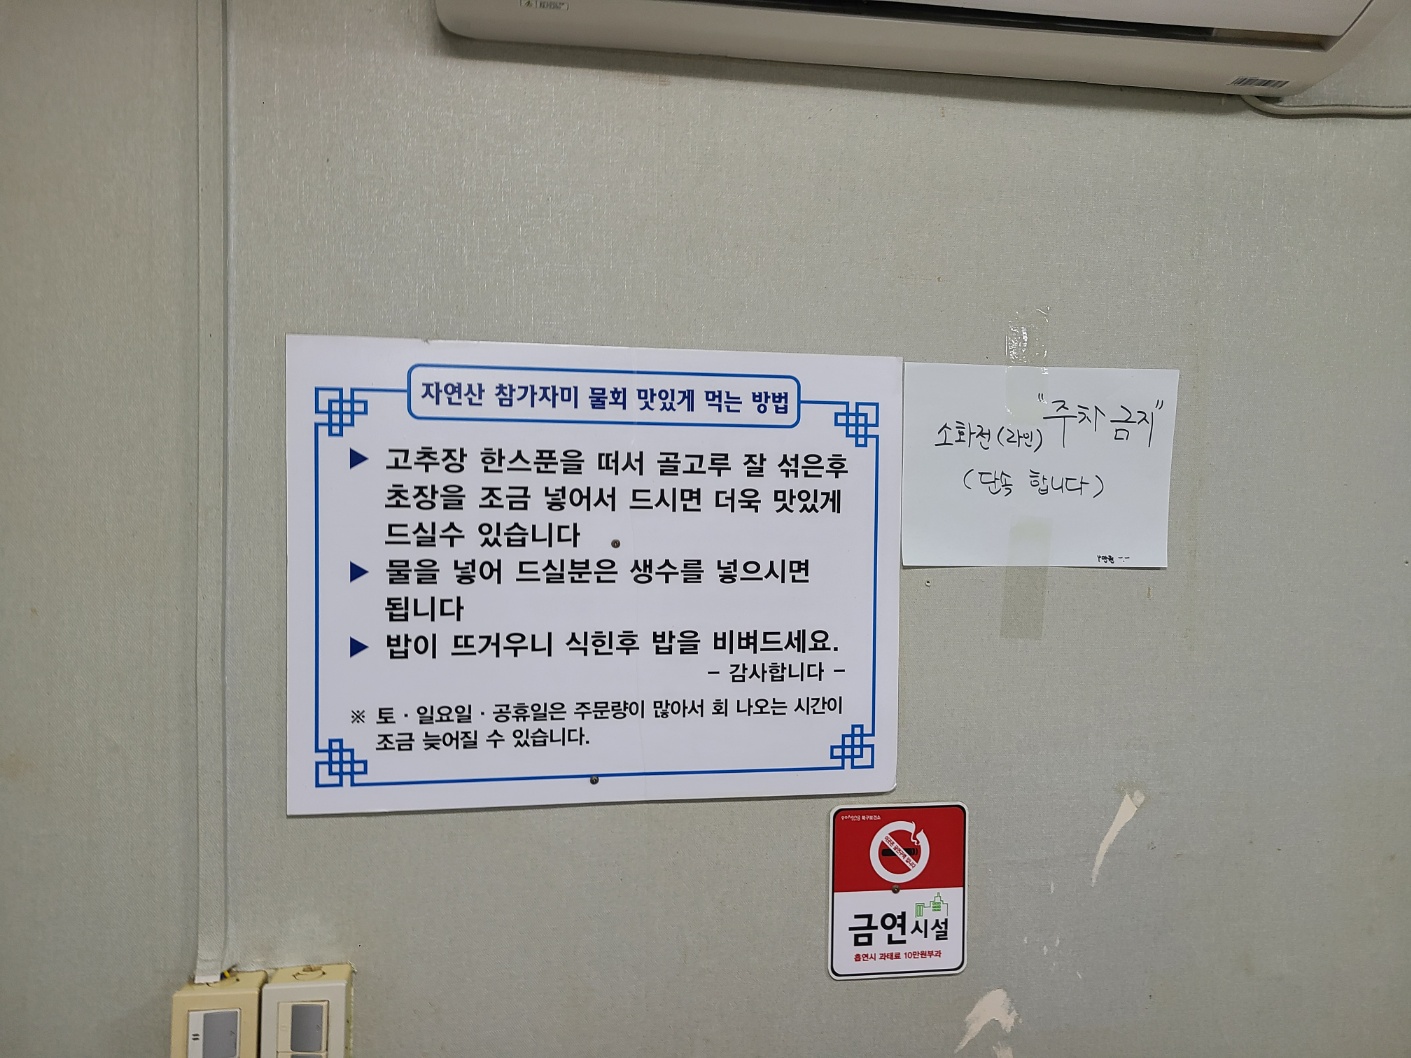 자연산 참가자미 물회 맛있게 먹는 방법
▶ 고추장 한스푼을 떠서 골고루 잘 섞은후
초장을 조금 넣어서 드시면 더욱 맛있게
드실수 있습니다
▶ 물을 넣어 드실분은 생수를 넣으시면
됩니다
▶ 밥이 뜨거우니 식힌후 밥을 비벼드세요.
- 감사합니다 -
※ 토·일요일·공휴일은 주문량이 많아서 회 나오는 시간이
조금 늦어질 수 있습니다.
소화전(라인) "주차 금지"
(단속 합니다)
금연시설
흡연시 과태료 10만원부과